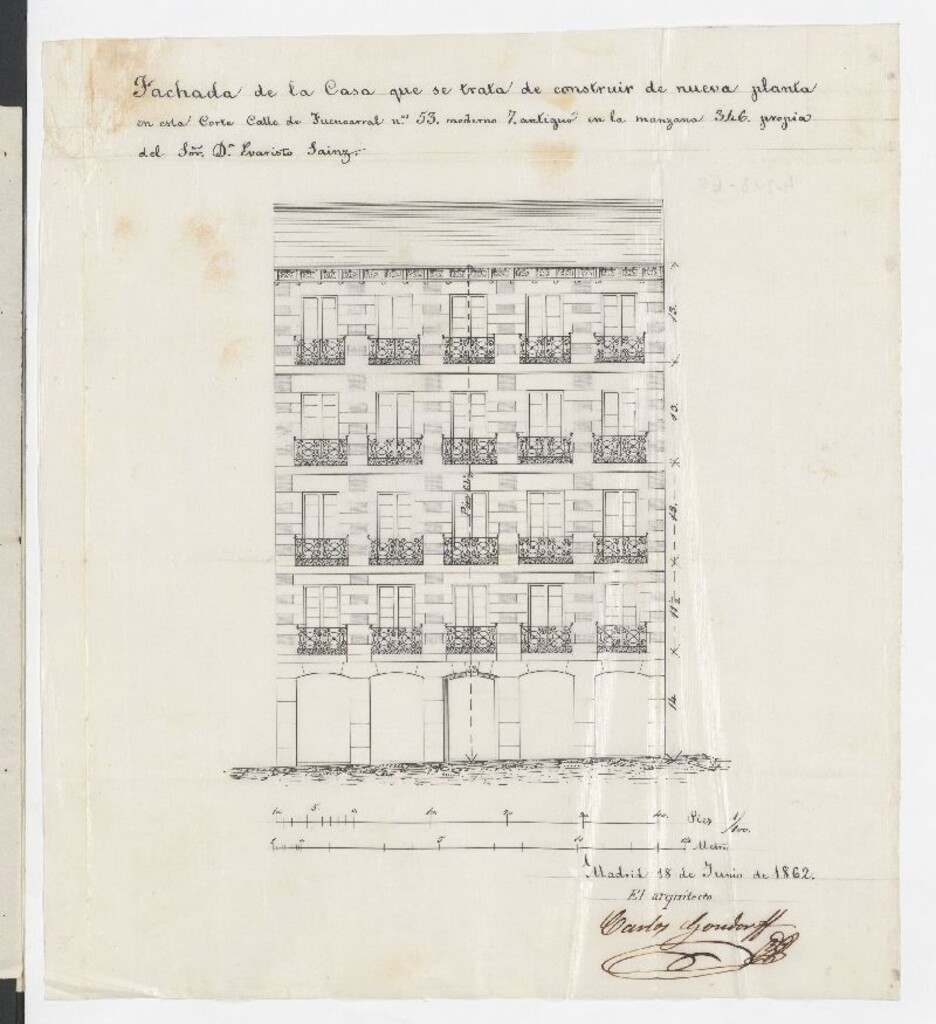 Fachada de la Casa que se trata de construir de nueva planta
en esta Corte Calle de Fuencarral n.º 53. moderno 7. antiguo en la manzana 346. propia
del Sor. Dn. Evaristo Sainz.
13.
13.
Pies
13.
11 ½
14.
5
Pies 1/100.
5
Met.
Madrid 18 de Junio de 1862.
El arquitecto
Carlos Gondorff